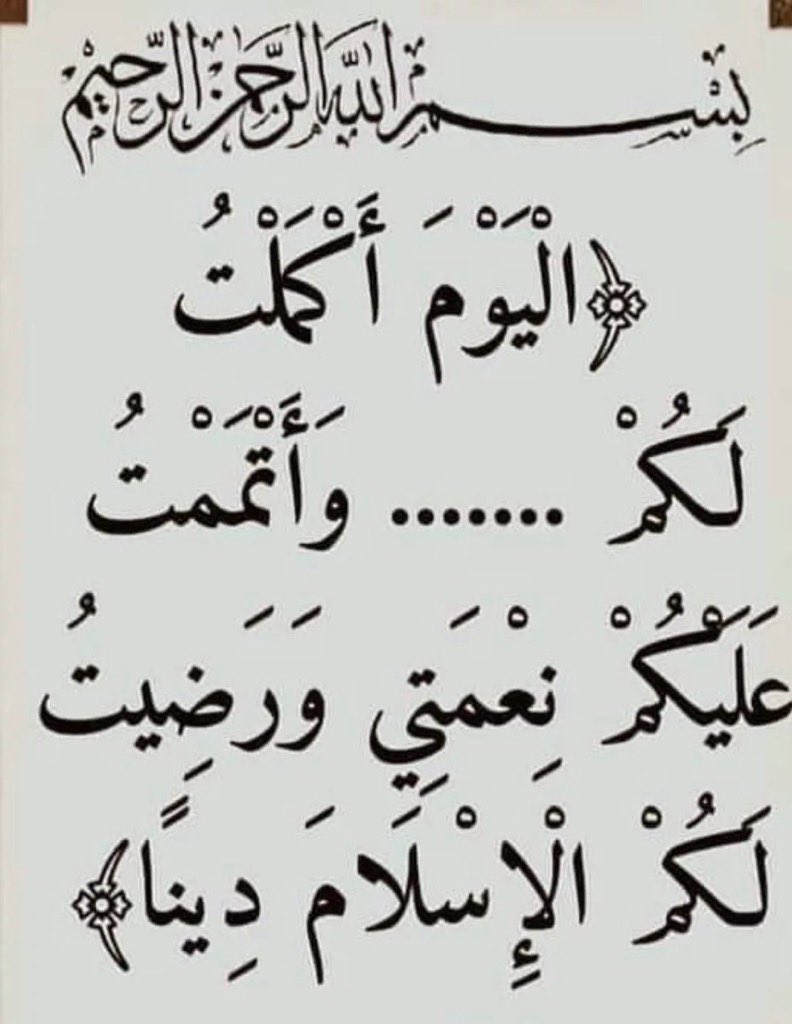 بِسْمِ اللَّهِ الرَّحْمَنِ الرَّحِيمِ
﴿الْيَوْمَ أَكْمَلْتُ
لَكُمْ ....... وَأَتْمَمْتُ
عَلَيْكُمْ نِعْمَتِي وَرَضِيتُ
لَكُمْ الْإِسْلَامَ دِينًا﴾